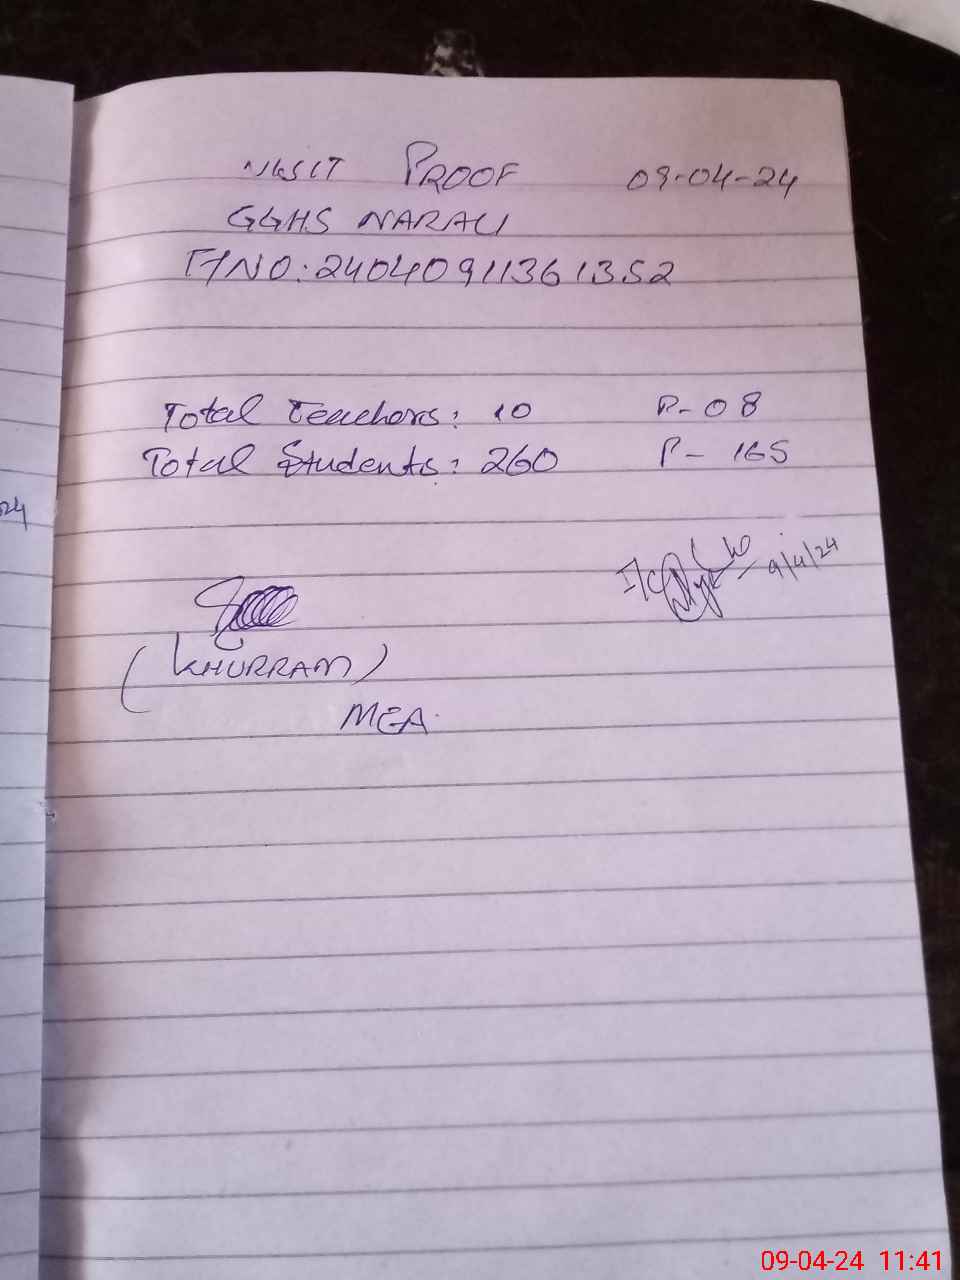 VISIT PROOF 09-04-24
GGHS NARALI
T/NO: 24040911361352
Total Teachers: 10 P-08
Total Students: 260 P- 165
24
I/C 9/4/24
(KHURRAM)
MEA.
09-04-24 11:41